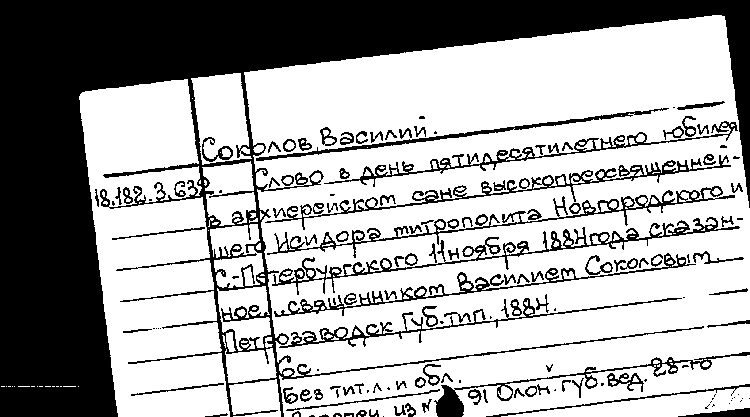 Соколов, Василий.
18.182.3.632. Слово в день пятидесятилетнего юбилея
в архиерейском сане высокопреосвященней-
шего Исидора митрополита Новгородского и
С.-Петербургского 11 ноября 1884 года, сказан-
ное... священником Василием Соколовым.
Петрозаводск, Губ. тип., 1884.
6с.
Без тит. л. и обл.
из № 91 Олон. губ. вед. 28-го